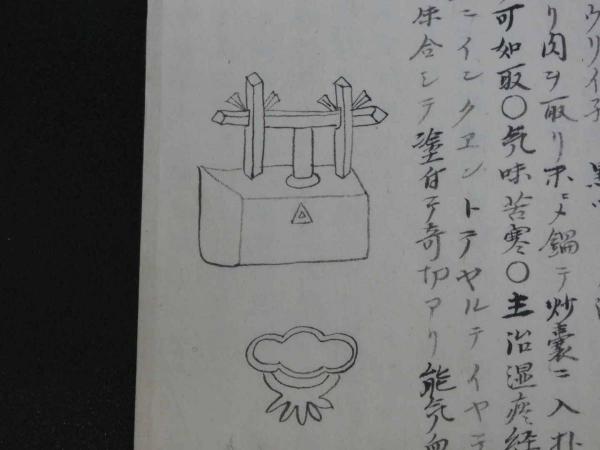 ウリイ子 黒
リ肉ヲ取リ末ニメ鍋テ炒嚢ニ入
可如取〇気味苦寒〇主治湿瘡経
ニインクエントテヤルテイヤテ
味合シテ塗付テ奇切アリ能気血